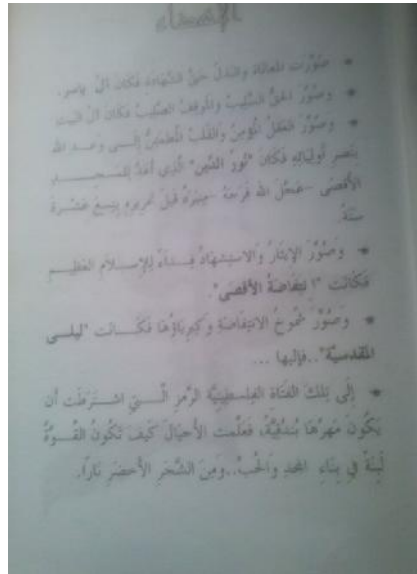 الإهداء
* صُوِّرَت المعاناة والبذلُ حتَّى الشهادة فكان آلُ ياسر.
* وصُوِّرَ الحقُّ السَّليبُ والموقفُ الصَّليبُ فكان آلُ البيت.
* وصُوِّرَ العقلُ المُؤمِنُ والقلبُ المُطمَئِنُّ إلـى وعـد الله
بنصرِ أوليائِهِ فكانَ "نُورُ الدِّين" الَّذي أعدَّ للمسـجـد
الأقصى -عجَّلَ الله فرَجَهُ- مِنبَرَهُ قبلَ تحريرِهِ بتِسعَ عَشـرةَ
سنةً.
* وصُوِّرَ الإيثارُ وَالاستِشهَادُ فِـداءً لِلإسـلامِ العَظِيـمِ
فكَانَت "اِنتِفَاضَةُ الأَقصَى".
* وصُوِّرَ شُموخُ الانتِفَاضَةِ وَكِبرِيَاؤُهَا فَكَـانت "ليلـى
المقدسيَّة"..فإليها ...
* إلَى تِلكَ الفَتَاةِ الفِلسطِينِيَّةِ الرَّمزِ الَّـتي اشـترَطَت أن
يَكُونَ مَهرُهَا بُندُقيَّةً، فَعَلَّمت الأجيَالَ كَيفَ تَكُونُ القُـوَّةُ
لَبِنَةً في بِنَاءِ المجدِ وَالحُبِّ..وَمِنَ الشَّجَرِ الأَخضَرِ نَاراً.